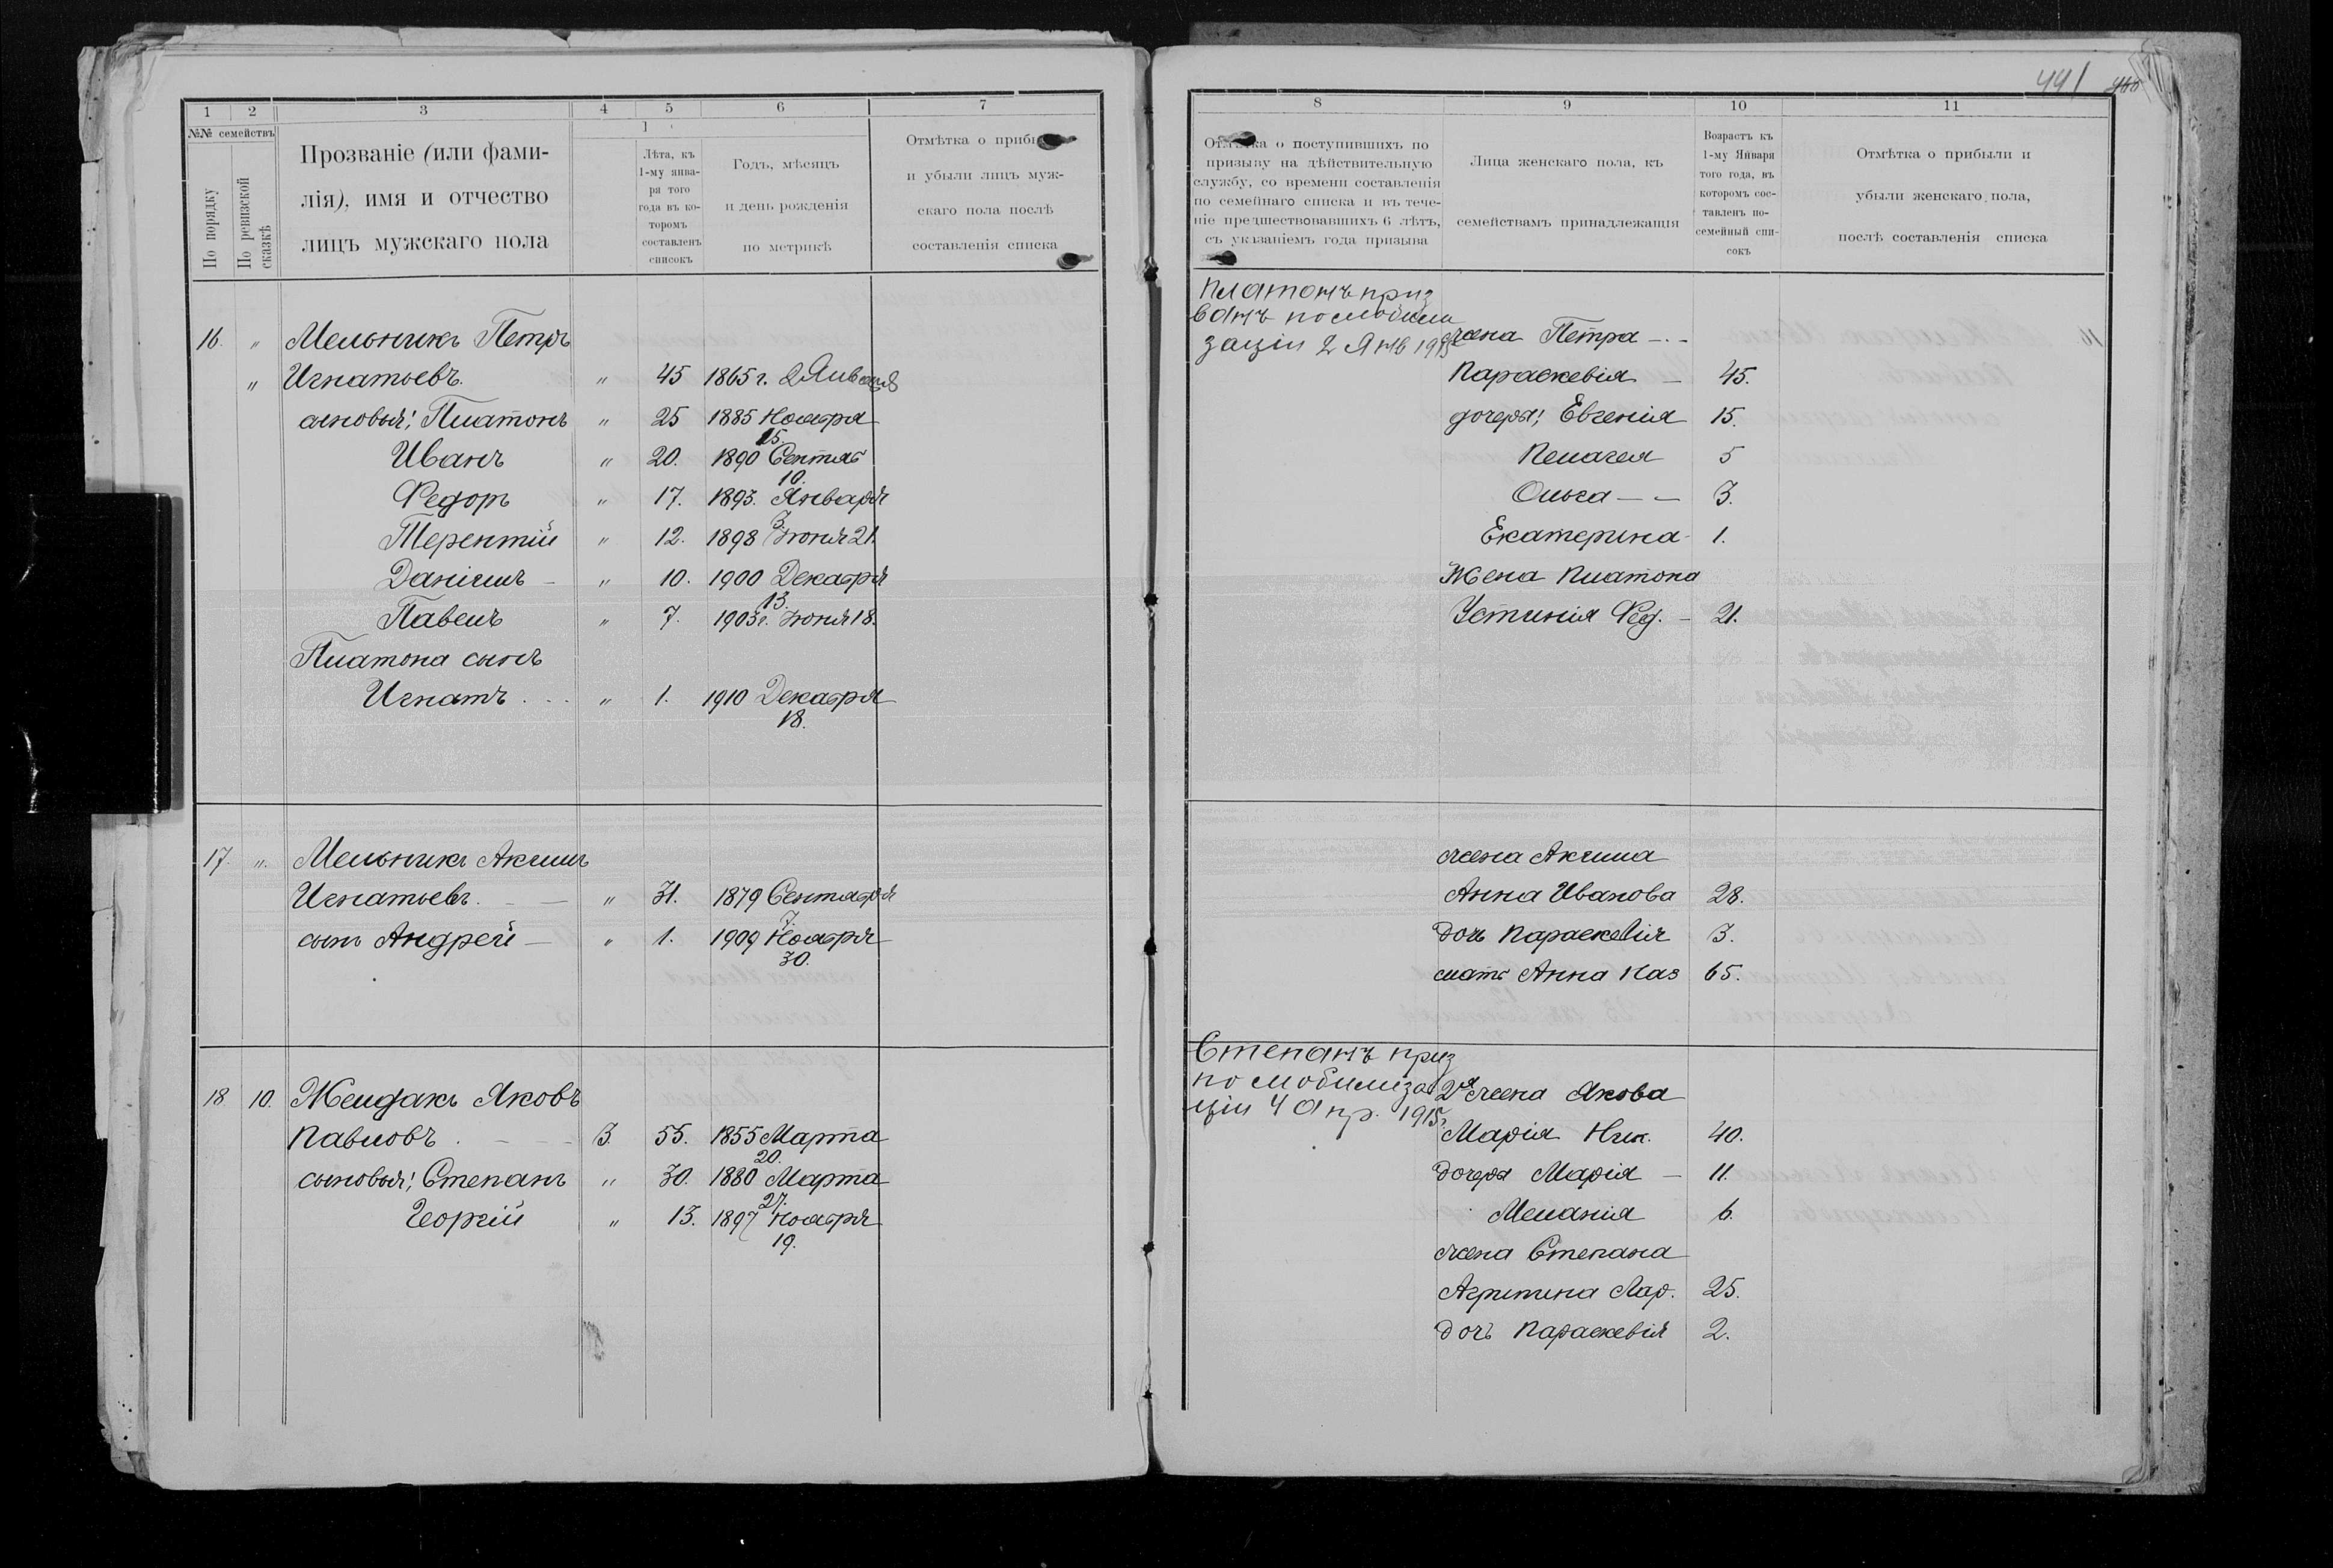 441
1 2 3 4 5 6 7
№№ семействъ
По порядку
По ревизской сказкѣ
Прозваніе (или фами-
лія), имя и отчество
лицъ мужскаго пола
Лѣта, къ
1-му янва-
ря того
года въ ко-
торомъ
составленъ
списокъ
Годъ, мѣсяцъ
и день рожденія
по метрикѣ
Отмѣтка о прибы
и убыли лицъ муж-
скаго пола послѣ
составленія списка
16. " Мельникъ Петръ
" Игнатьевъ. " 45 1865 г. 2 Января
сыновья: Платонъ " 25 1885 Ноября
15.
Иванъ " 20. 1890 Сентяб
10.
Федоръ " 17. 1893. Января
3.
Терентій " 12. 1898 Іюня 21.
Даніилъ - " 10. 1900 Декабря
13.
Павелъ " 7. 1903 г. Іюня 18.
Платона сынъ
Игнатъ . . . " 1. 1910 Декабря
18.
17. " Мельникъ Акимъ
Игнатьевъ. - — " 31. 1879 Сентября
7.
сынъ Андрей — " 1. 1909 Ноября
30.
18. 10. Желдакъ Яковъ
Павловъ . - - - 3. 55. 1855 Марта
20.
сыновья: Степанъ " 30. 1880 Марта
27.
Георгій " 13. 1897 Ноября
19.
8 9 10 11
Отмѣтка о поступившихъ по
призыву на дѣйствительную
службу, со времени составленія
по семейнаго списка и въ тече-
ніе предшествовавшихъ 6 лѣтъ,
съ указаніемъ года призыва
Лица женскаго пола, къ
семействамъ принадлежащія
Возрастъ къ
1-му Января
того года, въ
которомъ сос-
тавленъ по-
семейный спи-
сокъ
Отмѣтка о прибыли и
убыли женскаго пола,
послѣ составленія списка
Платонъ приз
ванъ по мобили
заціи 2 Янв 1915
жена Петра — -
Параскевія — 45.
дочеря: Евгенія 15.
Пелагея 5
Ольга — — 3.
Екатерина - 1.
Жена Платона
Устинія Фед. - 21.
жена Акима
Анна Иванова 28.
Дочь Параскевія 3.
мать Анна Каз 65.
Степанъ приз
по мобилиза
ціи 4 Апр. 1915 г.
2я жена Якова
Марія Ник. 40.
дочеря Марія — 11.
Меланія 6.
жена Степана
Агрипина Лар. 25.
дочь Параскевія 2.